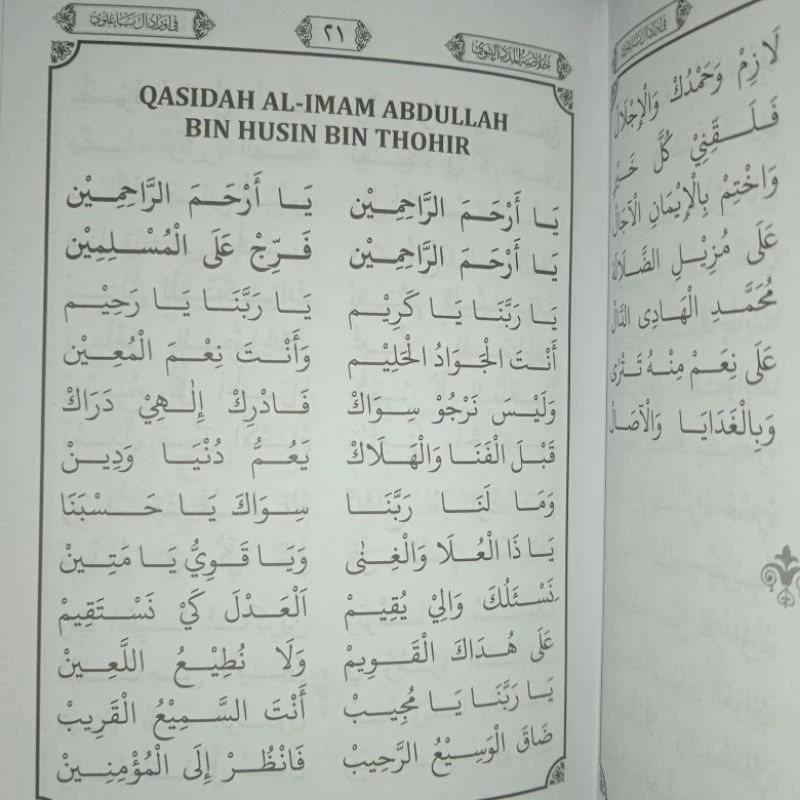 خُلَاصَةُ الْمَدَدِ النَّبَوِيِّ
٢١
فِي أَوْرَادِ آلِ بَا عَلَوِي
QASIDAH AL-IMAM ABDULLAH
BIN HUSIN BIN THOHIR
يَا أَرْحَمَ الرَّاحِمِيْن يَا أَرْحَمَ الرَّاحِمِيْن
يَا أَرْحَمَ الرَّاحِمِيْن فَرِّجْ عَلَى الْمُسْلِمِيْن
يَا رَبَّنَا يَا كَرِيْم يَا رَبَّنَا يَا رَحِيْم
أَنْتَ الْجَوَادُ الْحَلِيْم وَأَنْتَ نِعْمَ الْمُعِيْن
وَلَيْسَ نَرْجُوْ سِوَاكْ فَادْرِكْ إِلٰهِيْ دَرَاكْ
قَبْلَ الْفَنَا وَالْهَلَاكْ يَعُمُّ دُنْيَا وَدِيْنْ
وَمَا لَنَا رَبَّنَا سِوَاكَ يَا حَسْبَنَا
يَا ذَا الْعُلَا وَالْغِنٰى وَيَا قَوِيُّ يَا مَتِيْنْ
نَسْئَلُكَ وَالِيْ يُقِيْمْ اَلْعَدْلَ كَيْ نَسْتَقِيْمْ
عَلَى هُدَاكَ الْقَوِيمْ وَلَا نُطِيْعُ اللَّعِينْ
يَا رَبَّنَا يَا مُجِيبْ أَنْتَ السَّمِيْعُ الْقَرِيبْ
ضَاقَ الْوَسِيْعُ الرَّحِيبْ فَانْظُرْ إِلَى الْمُؤْمِنِيْنْ
فِي أَوْرَادِ آلِ بَا عَلَوِي
لَازِمْ وَحَمْدُكْ وَالْإِجْلَالْ
فَلَقِّنِيْ كُلَّ
وَاخْتِمْ بِالْإِيْمَانِ الْآجَالْ
عَلَى مُزِيْلِ الضَّلَالَهْ
مُحَمَّدِ الْهَادِى الدَّالْ
عَلَى نِعَمْ مِنْهُ تَتْرٰى
وَبِالْغَدَايَا وَالْآصَالْ